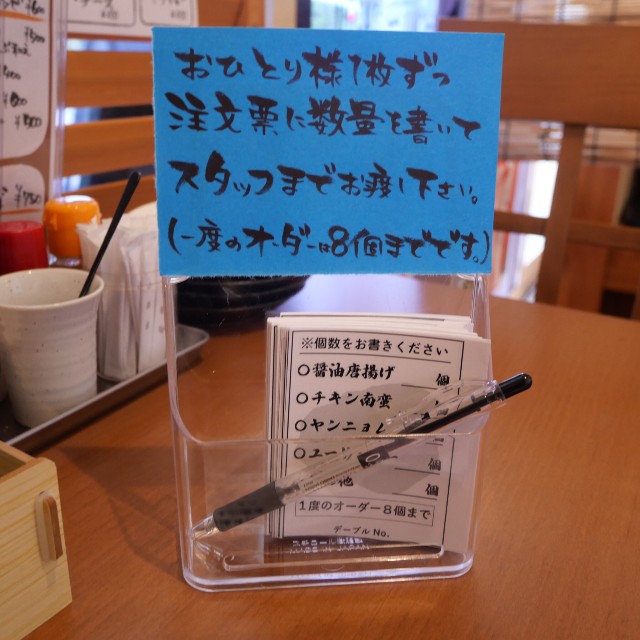 おひとり様1枚ずつ
注文票に数量を書いて
スタッフまでお渡し下さい。
(一度のオーダーは8個までです。)
※個数をお書きください
○醤油唐揚げ 個
○チキン南蛮
○ヤンニョム
○ユー 個
他 個
1度のオーダー8個まで
テーブル No.